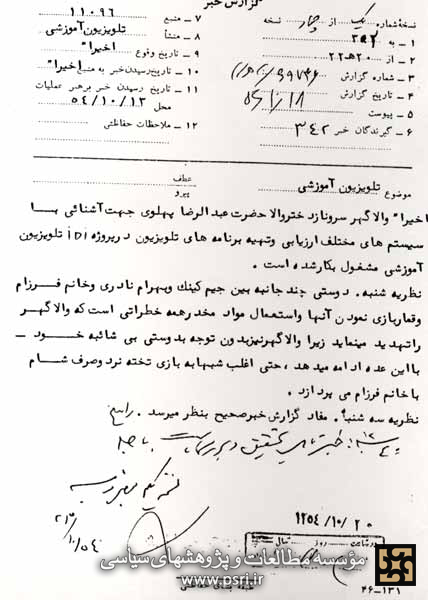 گزارش خبر
نسخه شماره یک از چهار نسخه
۱ - به ۳۵۲
۲ - از ۲۰هـ۲۲
۳ - شماره گزارش
۴ - تاریخ گزارش
۵ - پیوست
۶ - گیرندگان خبر ۳۴۲
۷ - منبع ۱۱۰۹۶
۸ - منشأ تلویزیون آموزشی
۹ - تاریخ وقوع اخیرا"
۱۰ - تاریخ رسیدن خبر به منبع اخیرا"
۱۱ - تاریخ رسیدن خبر برهبر عملیات
محل ۵۴/۱۰/۱۳
۱۲ - ملاحظات حفاظتی
موضوع تلویزیون آموزشی
عطف
پیرو
اخیرا" والاگهر سرونازد ختروالاحضرت عبدالرضا پهلوی جهت آشنائی با
سیستم های مختلف ارزیابی وتهیه برنامه های تلویزیون درپروژه iDi تلویزیون
آموزشی مشغول بکارشده است .
نظریه شنبه . دوستی چند جانبه بین جیم کینک وبهرام نادری وخانم فرزام
وقماربازی نمودن آنها واستعمال مواد مخدرهمه خطراتی است که والاگهر
راتهدید مینماید زیرا والاگهرنیزبدون توجه بدوستی بی شائبه خود -
بااین عده ادامه میدهد ، حتی اغلب شبهابه بازی تخته نرد وصرف شام
باخانم فرزام می پردازد .
نظریه سه شنبه . مفاد گزارش خبرصحیح بنظر میرسد . راسخ
۱۳۵۴/۱۰/۲۰
مؤسسه مطالعات و پژوهشهای سیاسی
www.psri.ir
۴۶-۱۳۱